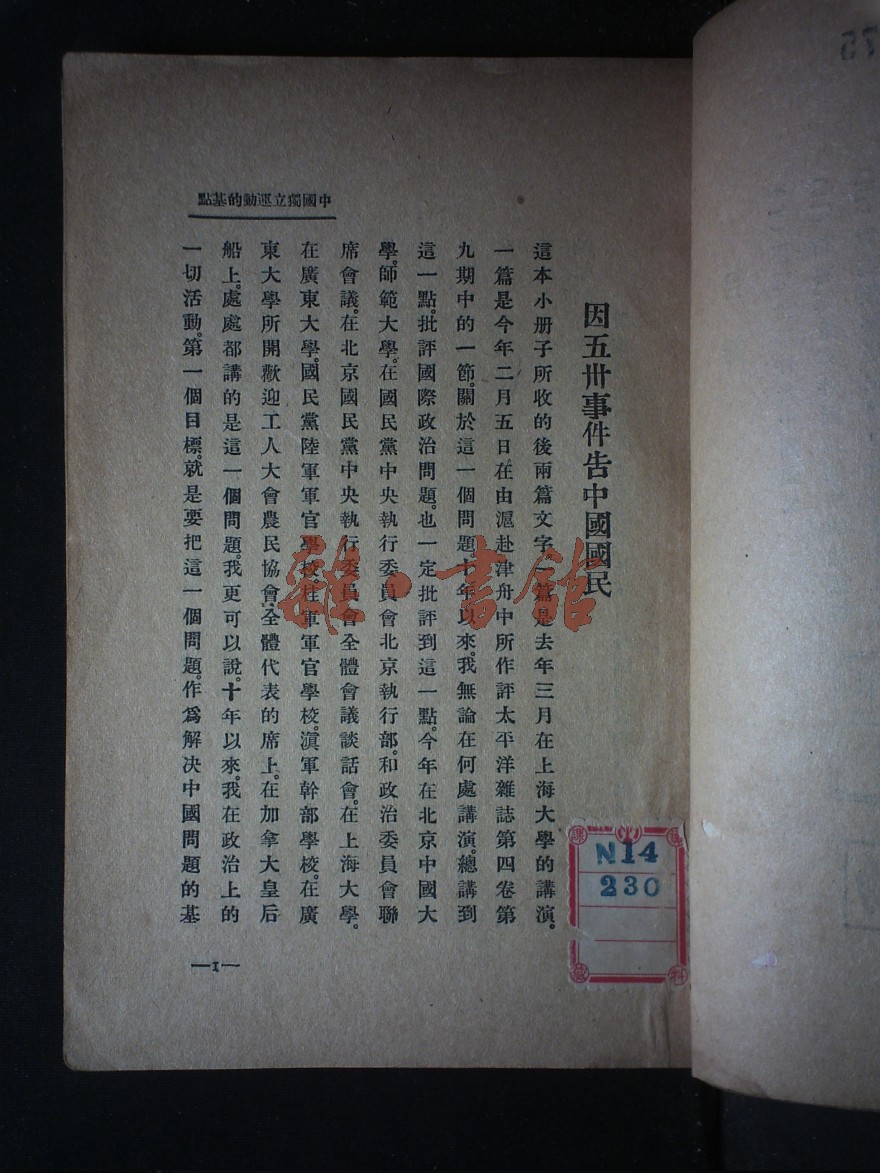 中國獨立運動的基點
因五卅事件告中國國民
這本小册子所收的後兩篇文字。一篇是去年三月在上海大學的講演。
一篇是今年二月五日在由滬赴津舟中所作評太平洋雜誌第四卷第
九期中的一節。關於這一個問題。十年以來。我無論在何處講演。總講到
這一點。批評國際政治問題。也一定批評到這一點。今年在北京中國大
學。師範大學。在國民黨中央執行委員會北京執行部。和政治委員會聯
席會議。在北京國民黨中央執行委員會全體會議談話會。在上海大學。
在廣東大學。國民黨陸軍軍官學校。桂軍軍官學校。滇軍幹部學校。在廣
東大學所開歡迎工人大會農民協會全體代表的席上。在加拿大皇后
船上。處處都講的是這一個問題。我更可以說。十年以來。我在政治上的
一切活動。第一個目標。就是要把這一個問題。作爲解决中國問題的基
—1—
N14
230
雜·書館